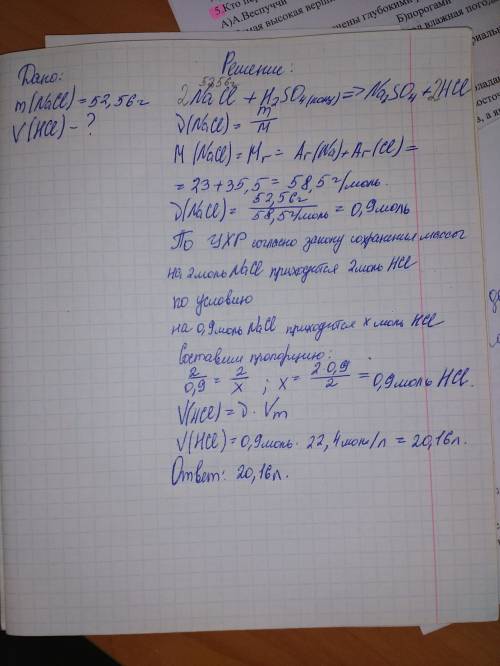 5.Кто пер
А)А.Веспуччи
мая высокая верши
чены глубокими
Б)порогами
ая влажная погод
Дано:
m(NaCl)=52,56г
V(HCl)-?
Решение:
52,56г
2NaCl + H₂SO₄(конц) => Na₂SO₄+2HCl
ν(NaCl)= m/M
M(NaCl)=Mr= Ar(Na)+Ar(Cl)=
=23+35,5=58,5г/моль.
ν(NaCl)= 52,56г/58,5г/моль = 0,9моль
По УХР согласно закону сохранения массы
на 2моль NaCl приходится 2моль HCl
по условию
на 0,9моль NaCl приходится x моль HCl
Составим пропорцию:
2/0,9 = 2/x ; x= 2·0,9/2 =0,9моль HCl.
V(HCl)=ν·Vm
V(HCl)=0,9моль·22,4моль/л=20,16л.
Ответ: 20,16л.